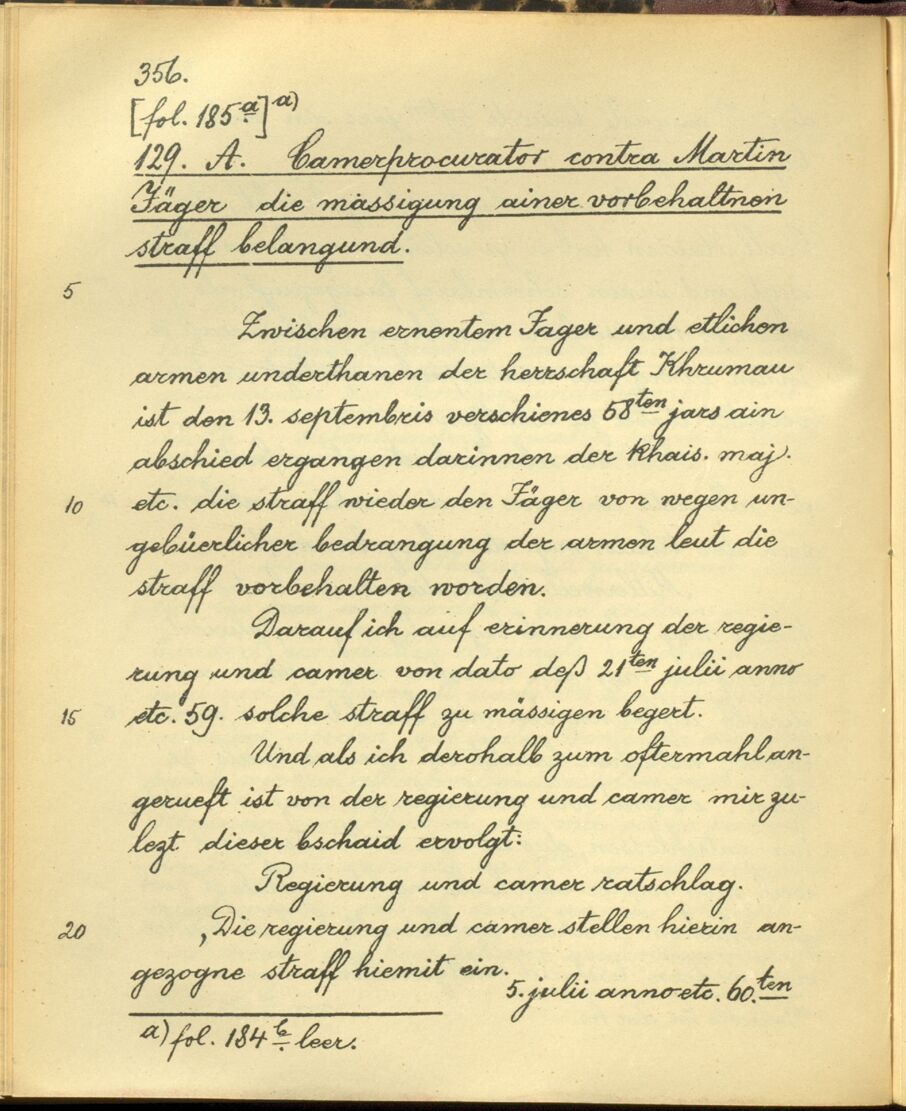 356.
[fol. 185a]a)
129. A. Camerprocurator contra Martin
Jäger die mässigung ainer vorbehaltnen
straff belangund.
5
Zwischen ernentem Jager und etlichen
armen underthanen der herrschaft Khrumau
ist den 13. septembris verschienes 58ten jars ain
abschied ergangen darinnen der khais. maj.
10 etc. die straff wieder den Jäger von wegen un-
gebüerlicher bedrangung der armen leut die
straff vorbehalten worden.
Darauf ich auf erinnerung der regie-
rung und camer von dato deß 21ten julii anno
15 etc. 59. solche straff zu mässigen begert.
Und als ich derohalb zum oftermahl an-
gerueft ist von der regierung und camer mir zu-
lezt dieser bschaid ervolgt:
Regierung und camer ratschlag.
20 ,Die regierung und camer stellen hierin an-
gezogne straff hiemit ein.
5. julii anno etc. 60.ten
a) fol. 184b leer.